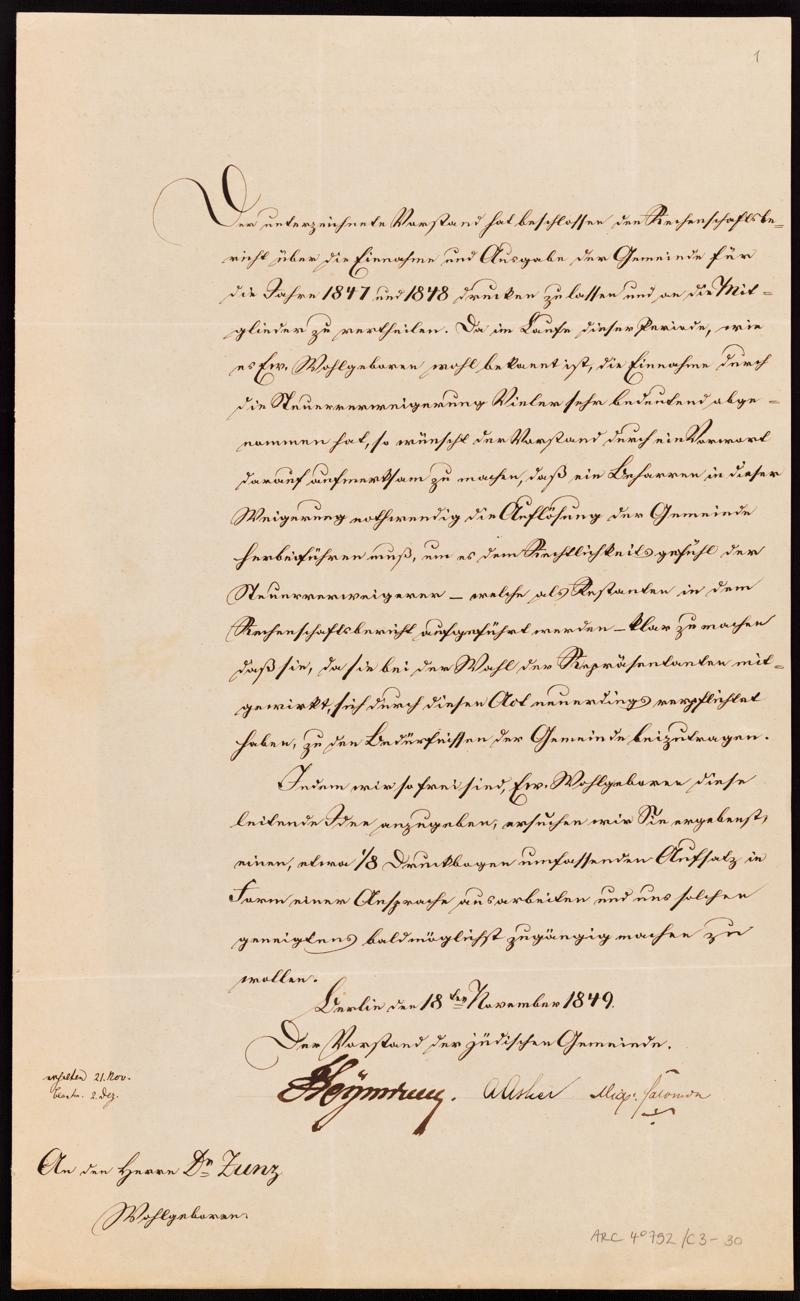 1
Der unterzeichnete Vorstand hat beschlossen den Rechenschaftsbe=
richt über die Einnahme und Ausgabe der Gemeinde für
die Jahre 1847 und 1848 drucken zu lassen und an die Mit=
glieder zu vertheilen. Da im Laufe dieser Periode, wie
es Ew. Wohlgeboren wohl bekannt ist, die Einnahme durch
die Steuerverweigerung Vieler sehr bedeutend abge=
nommen hat, so wünscht der Vorstand durch ein Vorwort
darauf aufmerksam zu machen, daß ein Beharren in dieser
Weigerung nothwendig die Auflösung der Gemeinde
herbeiführen muß, um es dem Rechtlichkeitsgefühl der
Steuerverweigerer — welche als Restanten in dem
Rechenschaftsbericht aufgeführt werden — klar zu machen
daß sie, da sie bei der Wahl der Repräsentanten mit=
gewirkt, sich durch diesen Act neuerdings verpflichtet
haben, zu den Bedürfnissen der Gemeinde beizutragen.
Indem wir so frei sind, Ew. Wohlgeboren diese
leitende Idee anzugeben, ersuchen wir Sie ergebenst,
einen, etwa 1/8 Druckbogen umfassenden Aufsatz in
Form einer Ansprache ausarbeiten und uns solchen
geneigtens baldmöglichst zugängig machen zu
wollen.
Berlin den 18ten November 1849.
Der Vorstand der jüdischen Gemeinde.
Heymann. A Asher Salomon
erhalten 21. Nov.
beantw. 2. Dez.
An den Herrn Dr Zunz
Wohlgeboren.
ARC 4° 792/C3-30